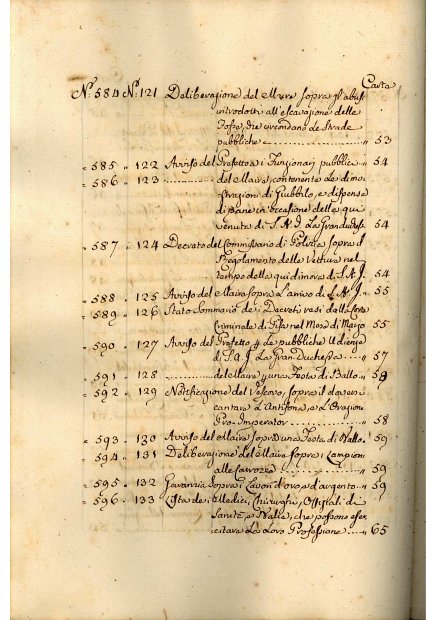 Carta
Nº. 584 Nº. 121 Deliberazione del Maire sopra gl'abusi
introdotti all'escavazione delle
Fosse, che circondano Le Strade
pubbliche 53
" 585 " 122 Avviso del Prefetto a i Funzionarj pubblici 54
" 586 " 123 del Maire, contenente Le dimo
strazioni di Giubbilo, e dispensa
di pane in occasione della qui
venuta di S.A.I. La Granduchessa 54
" 587 " 124 Decreto del Commissario di Polizia sopra il
Regolamento delle Vetture nel
tempo della qui dimora di S.A.I. 54
" 588 " 125 Avviso del Maire sopra L'arrivo di S.A.I. 55
" 589 " 126 Stato Sommario de i Decreti resi dalla Corte
Criminale di Pisa nel Mese di Maggio 55
" 590 " 127 Avviso del Prefetto p. Le pubbliche Udienze
di S.A.I. La Gran Duchessa " 57
" 591 " 128 del Maire p. una Festa di Ballo " 58
" 592 " 129 Notificazione del Vescovo, sopra il doversi
cantare L'Antifona, e L'Orazione
Pro Imperator " 58
" 593 " 130 Avviso del Maire sopra una Festa di Ballo " 59
" 594 " 131 Deliberazione del Maire sopra i Campioni
alle " 59
" 595 " 132 sopra i Lavori d'oro, e d'argento " 59
" 596 " 133 Lista de i Medici, Chirurghi, Offiziali di
Sanità, e Balie, che possono eser
citare La Loro Professione " 65